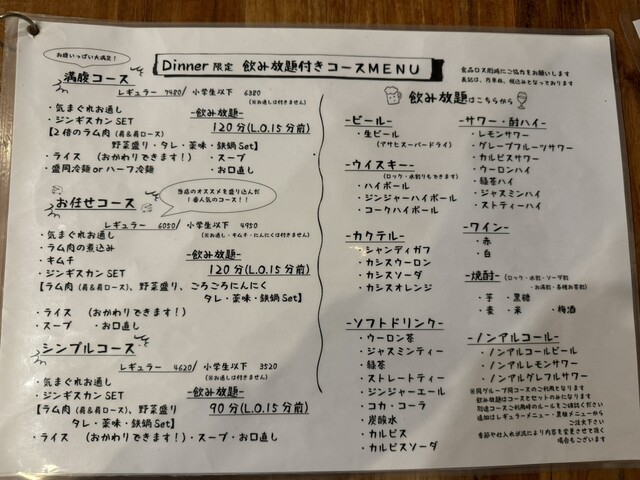 お腹いっぱい大満足！
Dinner 限定 飲み放題付きコースMENU
食品ロス削減にご協力をお願いします
表記は、内単位、税込みとなっております
満腹コース
レギュラー 7480/ 小学生以下 6380
(※お通しは付きません)
・気まぐれお通し
・ジンギスカンSET
-飲み放題-
120分(L.O.15分前)
【2倍のラム肉（肩＆肩ロース）
野菜盛り・タレ・薬味・鉄鍋Set】
・ライス （おかわりできます！） ・スープ
・盛岡冷麺orハーフ冷麺 ・お口直し
当店のオススメを盛り込んだ
1番人気のコース！！
お任せコース
レギュラー 6050/ 小学生以下 4950
(※お通し・キムチ・にんにくは付きません)
・気まぐれお通し
・ラム肉の煮込み
・キムチ
・ジンギスカンSET
-飲み放題-
120分(L.O.15分前)
【ラム肉（肩＆肩ロース）、野菜盛り、ごろごろにんにく
タレ・薬味・鉄鍋Set】
・ライス （おかわりできます！）
・スープ ・お口直し
シンプルコース
レギュラー 4620/ 小学生以下 3520
(※お通しは付きません)
・気まぐれお通し
・ジンギスカンSET
-飲み放題-
90分(L.O.15分前)
【ラム肉（肩＆肩ロース）、野菜盛り
タレ・薬味・鉄鍋Set】
・ライス （おかわりできます！）・スープ・お口直し
飲み放題はこちらから
-ビール-
・生ビール
(アサヒスーパードライ)
-ウイスキー-
(ロック・水割りもできます)
・ハイボール
・ジンジャーハイボール
・コークハイボール
-カクテル-
・シャンディガフ
・カシスウーロン
・カシスソーダ
・カシスオレンジ
-ソフトドリンク-
・ウーロン茶
・ジャスミンティー
・緑茶
・ストレートティー
・ジンジャーエール
・コカ・コーラ
・炭酸水
・カルピス
・カルピスソーダ
-サワー・酎ハイ-
・レモンサワー
・グレープフルーツサワー
・カルピスサワー
・ウーロンハイ
・緑茶ハイ
・ジャスミンハイ
・ストティーハイ
-ワイン-
・赤
・白
-焼酎-
(ロック・水割・ソーダ割
・お湯割・各種お茶割)
・芋 ・黒糖
・麦 ・米 ・梅酒
-ノンアルコール-
・ノンアルコールビール
・ノンアルレモンサワー
・ノンアルグレフルサワー
※同グループ同コースのご利用となります
飲み放題はコースとセットのみになります
別途コースご利用時のルールをご確認ください
追加はレギュラーメニュー・黒板メニューから
ご注文下さい
季節や仕入れ状況により内容を変更させて頂く
場合もございます